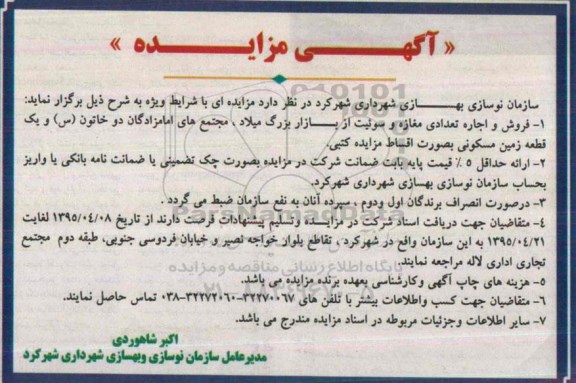 « آگهـــی مزایـــده »
سازمان نوسازی بهـــازی شهرداری شهرکرد در نظر دارد مزایده ای با شرایط ویژه به شرح ذیل برگزار نماید:
۱- فروش و اجاره تعدادی مغازه و سوئیت از بـــازار بزرگ میلاد ، مجتمع های امامزادگان دو خاتون (س) و یک
قطعه زمین مسکونی بصورت اقساط مزایده کتبی.
۲- ارائه حداقل ۵ ٪ قیمت پایه بابت ضمانت شرکت در مزایده بصورت چک تضمینی یا ضمانت نامه بانکی یا واریز
بحساب سازمان نوسازی بهسازی شهرداری شهرکرد.
۳- درصورت انصراف برندگان اول ودوم ، سپرده آنان به نفع سازمان ضبط می گردد .
۴- متقاضیان جهت دریافت اسناد شرکت در مزایـــده وتسلیم پیشنهادات فرصت دارند از تاریخ ۱۳۹۵/۰۴/۰۸ لغایت
۱۳۹۵/۰۴/۲۱ به این سازمان واقع در شهرکرد ، تقاطع بلوار خواجه نصیر و خیابان فردوسی جنوبی، طبقه دوم مجتمع
تجاری اداری لاله مراجعه نمایند.
۵- هزینه های چاپ آگهی وکارشناسی بعهده برنده مزایده می باشد.
۶- متقاضیان جهت کسب واطلاعات بیشتر با تلفن های ۳۲۲۷۰۰۶۷-۳۲۲۷۲۰۶۰-۰۳۸ تماس حاصل نمایند.
۷- سایر اطلاعات وجزئیات مربوطه در اسناد مزایده مندرج می باشد.
اکبر شاهوردی
مدیرعامل سازمان نوسازی وبهسازی شهرداری شهرکرد
پایگاه اطلاع رسانی مناقصه و مزایده